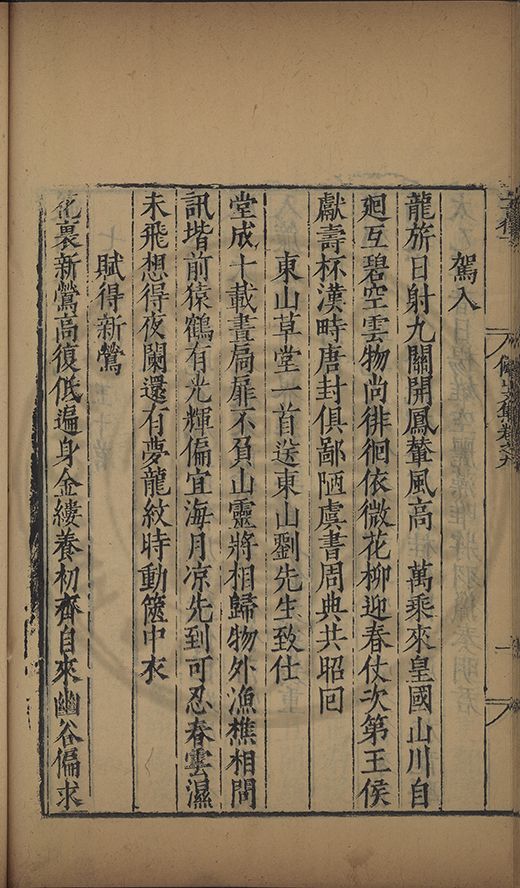 駕入
龍旂日射九關開鳳輦風高 萬乘來皇國山川自
廻互碧空雲物尚徘徊依微花柳迎春仗次第王侯
獻壽杯漢畤唐封俱鄙陋虞書周典共昭囘
東山草堂一首送東山劉先生致仕
堂成十載晝扃扉不負山靈將相歸物外漁樵相問
訊堦前猿鶴有光輝偏宜海月凉先到可忍春雲濕
未飛想得夜闌還有夢龍紋時動篋中衣
賦得新鶯
花裏新鶯高復低遍身金縷養初齊自來幽谷偏求